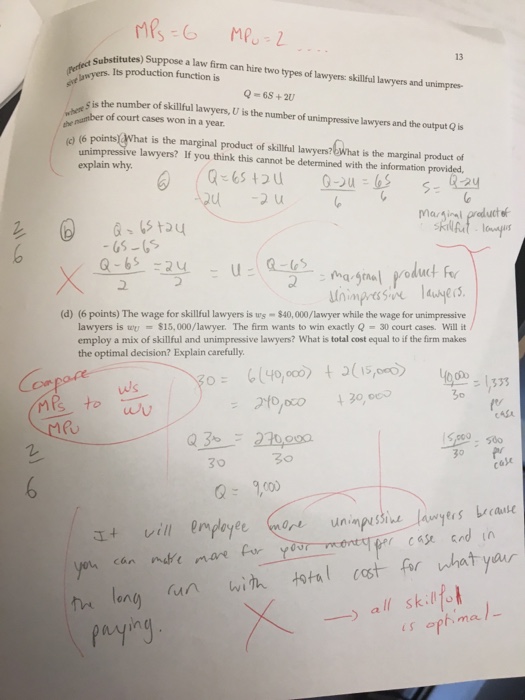 MPs = 6 MPu = 2 ....
13
(Perfect Substitutes) Suppose a law firm can hire two types of lawyers: skillful lawyers and unimpres-
sive lawyers. Its production function is
Q = 6S + 2U
where S is the number of skillful lawyers, U is the number of unimpressive lawyers and the output Q is
the number of court cases won in a year.
(c) (6 points) What is the marginal product of skillful lawyers? What is the marginal product of
unimpressive lawyers? If you think this cannot be determined with the information provided,
explain why.
(a) Q = 6S + 2U Q-2U = 6S S = Q-2U
-2U -2U 6 6 6
marginal product of
skillful lawyers
2/6
(b) Q = 6S + 2U
-6S -6S
X Q-6S = 2U = U = Q-6S = marginal product for
2 2 2 unimpressive lawyers.
(d) (6 points) The wage for skillful lawyers is ws = $40,000/lawyer while the wage for unimpressive
lawyers is wu = $15,000/lawyer. The firm wants to win exactly Q = 30 court cases. Will it
employ a mix of skillful and unimpressive lawyers? What is total cost equal to if the firm makes
the optimal decision? Explain carefully.
Compare
MPs to ws
MPu wu
30 = 6(40,000) + 2(15,000) 40,000 = 1,333
30 per case
= 240,000 + 30,000
Q 30 = 270,000 15,000 = 500
30 30 30 per case
2/6
Q = 9,000
It will employee more unimpressive lawyers because
you can make more for your money per case and in
the long run with total cost for what your
paying.
X → all skillful
is optimal